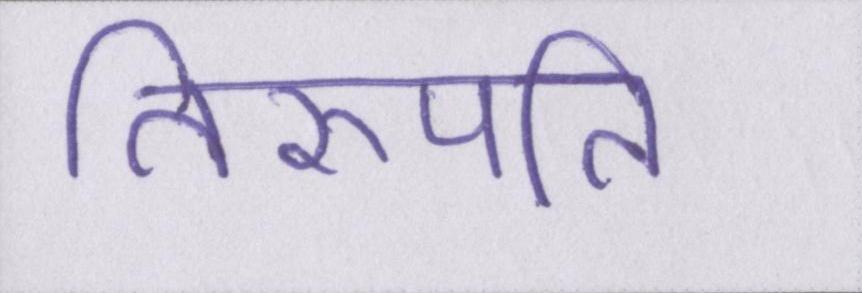 तिरुपति